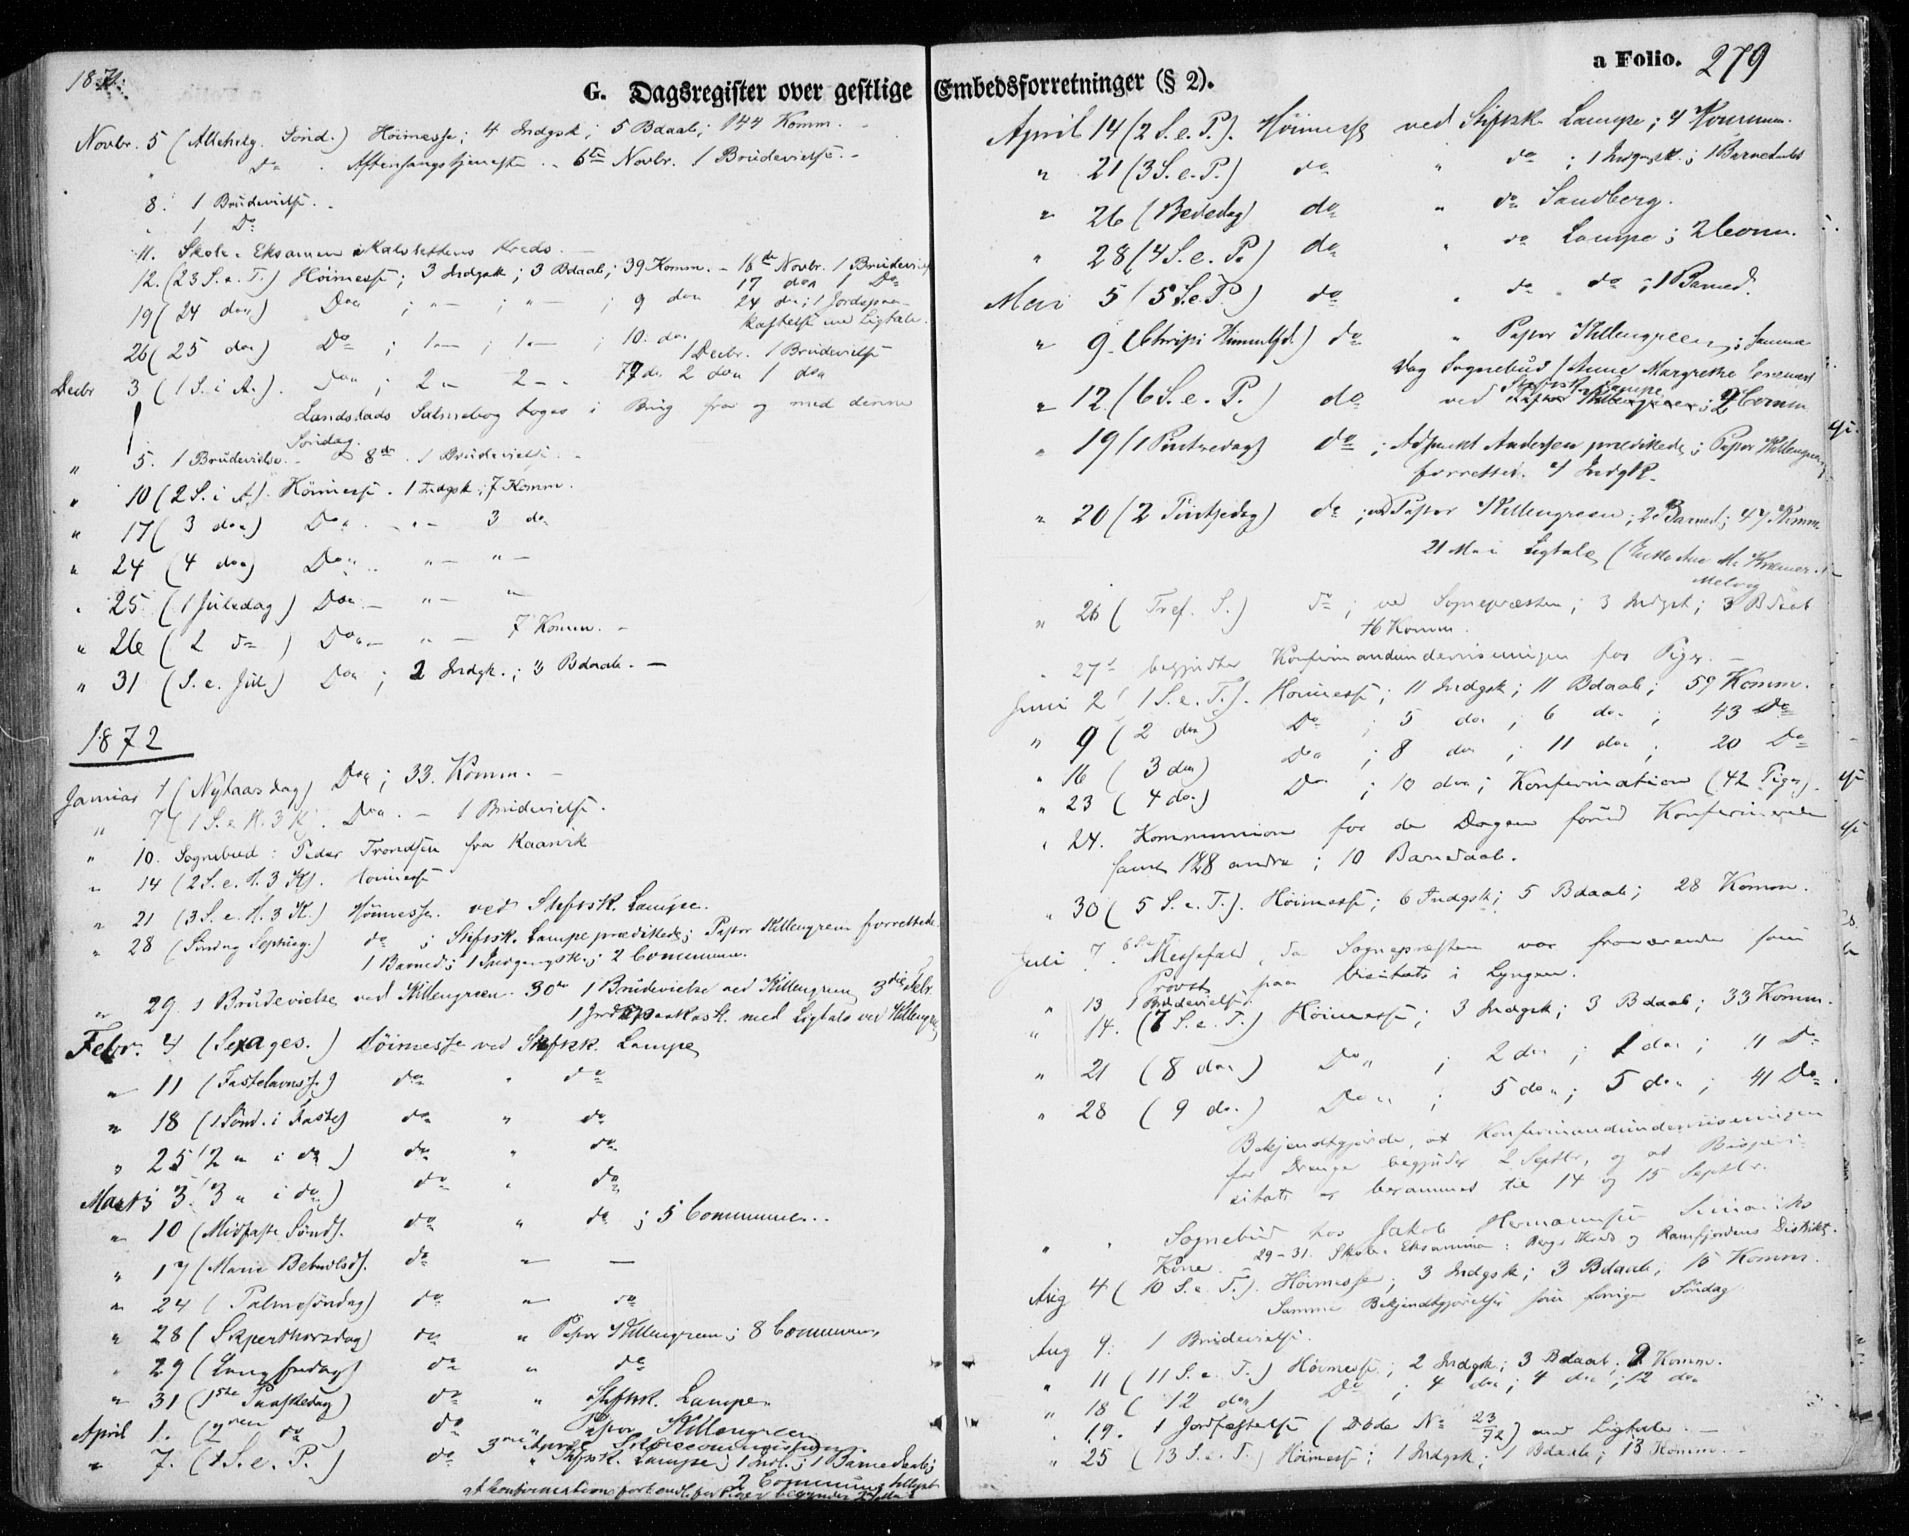 1871.
G. Dagsregister over gestlige Embedsforretninger (§ 2).
a Folio. 279
Novbr. 5 (Allehelg. Sönd.) Höimesse; 4 Indgsk; 5 Bdaab; 144 Komm.
" Do Aftensangstjeneste 6te Novbr. 1 Brudevielse
8. 1 Brudevielse
1 Do
11. Skole-Eksamen i Kreds.
12. (23 S.e.T.) Höimesse; 3 Indgsk; 3 Bdaab; 39 Komm. - 16de Novbr. 1 Brudevielse
17 do 1 Do
19 (24 do) Do ; " ; " ; 9 do 24 do; 1 Jordspaa-
kastelse med Ligtale.
26 (25 do) Do ; 1 ; 1 ; 10. do
1 Decbr. 1 Brudevielse
Decbr 3 (1 S. i A.). Do ; 2 2 77 do 2 do 1 do
Landstads Salmebog toges i Brug fra og med denne
Söndag.
" 5. 1 Brudevielse. 8de 1 Brudevielse.
" 10 (2 S. i A.). Höimesse. 1 Indgsk; 7 Komm.
" 17 (3 do) Do " 3 do
" 24 (4 do) Do " "
" 25 (1 Juledag) Do " "
" 26 (2 do) Do " 7 Komm.
" 31 (S. e. Jul) Do ; 2 Indgk.; 3 Bdaab.
1872
Januar 1 (Nytaarsdag) Do ; 33. Komm.
" 7 (1 S. e. H. 3 K). Do. - 1 Brudevielse.
" 10. Sognebud: Peder Trondsen fra Kaarvik
" 14 (2 S. e. H. 3 K). Höimesse
" 21 (3 S. e. H. 3 K.) Höimesse. ved Stiftsk. Lampe.
" 28 (Söndag Septuag.) do ; Stiftsk. Lampe prædikede; Pastor Killengreen forrettede
1 Barned; 1 Indgangsk.; 2 Commun.
" 29. 1 Brudevielse ved Killengreen. 30te 1 Brudevielse ved Killengreen 3die Febr.
1 Jordspaakast. med Ligtale ved Killengreen
Febr. 4 (Sexages.) Höimesse ved Stiftsk. Lampe
" 11 (Fastelavnss.) do " do
" 18 (1 Sönd. i Faste) do " do
" 25 (2 " i do) do " do
Marts 3. (3 " i do) do " do
" 10 (Midfaste Sönd). do " do ; 5 Communic.
" 17 (Marie Bebudelsd). do " —
" 24 (Palmesöndag) do " do
" 28 (Skjærthorsdag) do " Pastor Killengreen; 8 Commun.
" 29 (Langfredag) do " do
" 31 (1ste Paaskedag) do " Stiftsk. Lampe.
April 1. (2den do) do " Pastor Killengreen
3die April Skolecommission.
" 7. (1 S. e. P.) do " Stiftsk. Lampe; 1 Indl.; 1 Barnedaab;
2 Commun. tillyst
at konfirmationsforb. for Piger begynder
April 14 (2 S.e.P.). Höimesse ved Stiftsk. Lampe; 4 Kommun.
" 21 (3 S.e.P.) do " do ; 1 Indgsk.; 1 Barnedaab
" 26 (Bededag) do " do Sandberg.
" 28 (4 S.e.P.) do " do Lampe; 2 Comm.
Mai 5 (5 S.e.P.) do " do do ; 1 Barned.
" 9. (Christi Himmelfd.) do " Pastor Killengreen; samme
Dag Sognebud (Anne Margrethe
" 12. (6 S.e.P.) do ved Stiftsk. Lampe; 2 Comm
" 19 (1 Pintsedag) do ; Adjunkt Andersen prædikede; Pastor Killengreen
forrettede. 4 Indgk.
" 20 (2 Pintsedag) do ; ved Pastor Killengreen; 2 Barned; 47 Komm
21 Mai Ligtale (Enke M. Kræmer
" 26 (Tref. S.) do ; ved Sognepræsten; 3 Indgsk; 3 Bdaab
46 Komm.
" 27de begyndte Konfirmandundervisningen for Piger.
Juni 2 (1 S.e.T.). Höimesse; 11 Indgsk; 11 Bdaab; 59 Komm.
" 9 (2 do) Do ; 5 do ; 6 do ; 43 Do
" 16 (3 do) Do ; 8 do ; 11 do ; 20 Do
" 23 (4 do) Do ; 10 do ; Konfirmation (42 Piger).
" 24. Kommunion for de Dagen forud Konfirmerede
samt 128 andre; 10 Barnedaab.
" 30 (5 S.e.T.). Höimesse; 6 Indgsk; 5 Bdaab; 28 Komm.
Juli 7. 6 S.e.T. Messefald, da Sognepræsten var fraværende som
Provst paa Visitats i Lyngen.
" 13 1 Brudevielse.
" 14. (7 S.e.T.) Höimesse; 3 Indgsk; 3 Bdaab; 33 Komm.
" 21 (8 do) Do ; 2 do ; 1 do ; 11 Do
" 28 (9 do.) Do ; 5 do ; 5 do ; 41 Do.
Bekjendtgjorde, at Konfirmandundervisningen
for Drenge begynder 2 Septbr, og at Bispevi-
sitats er berammet til 14 og 15 Septbr.
" " Sognebud hos Jakob Hermansen
Kone. 29-31. Skole-Eksamen i Bergs Kreds og Ramfjordens Distrikt.
Aug 4 (10 S.e.T.). Höimesse; 3 Indgsk; 3 Bdaab; 15 Komm.
Samme Bekjendtgjörelse som forrige Söndag
Aug 9. 1 Brudevielse.
" 11 (11 S.e.T.) Höimesse; 2 Indgsk; 3 Bdaab; 2 Komm.
" 18 (12 do) Do ; 4 do ; 4 do ; 12 do
" 19. 1 Jordfæstelse (Döde No 23/72) med Ligtale.
" 25 (13 S.e.T.) Höimesse; 1 Indgsk; 1 Bdaab; 13 Komm.